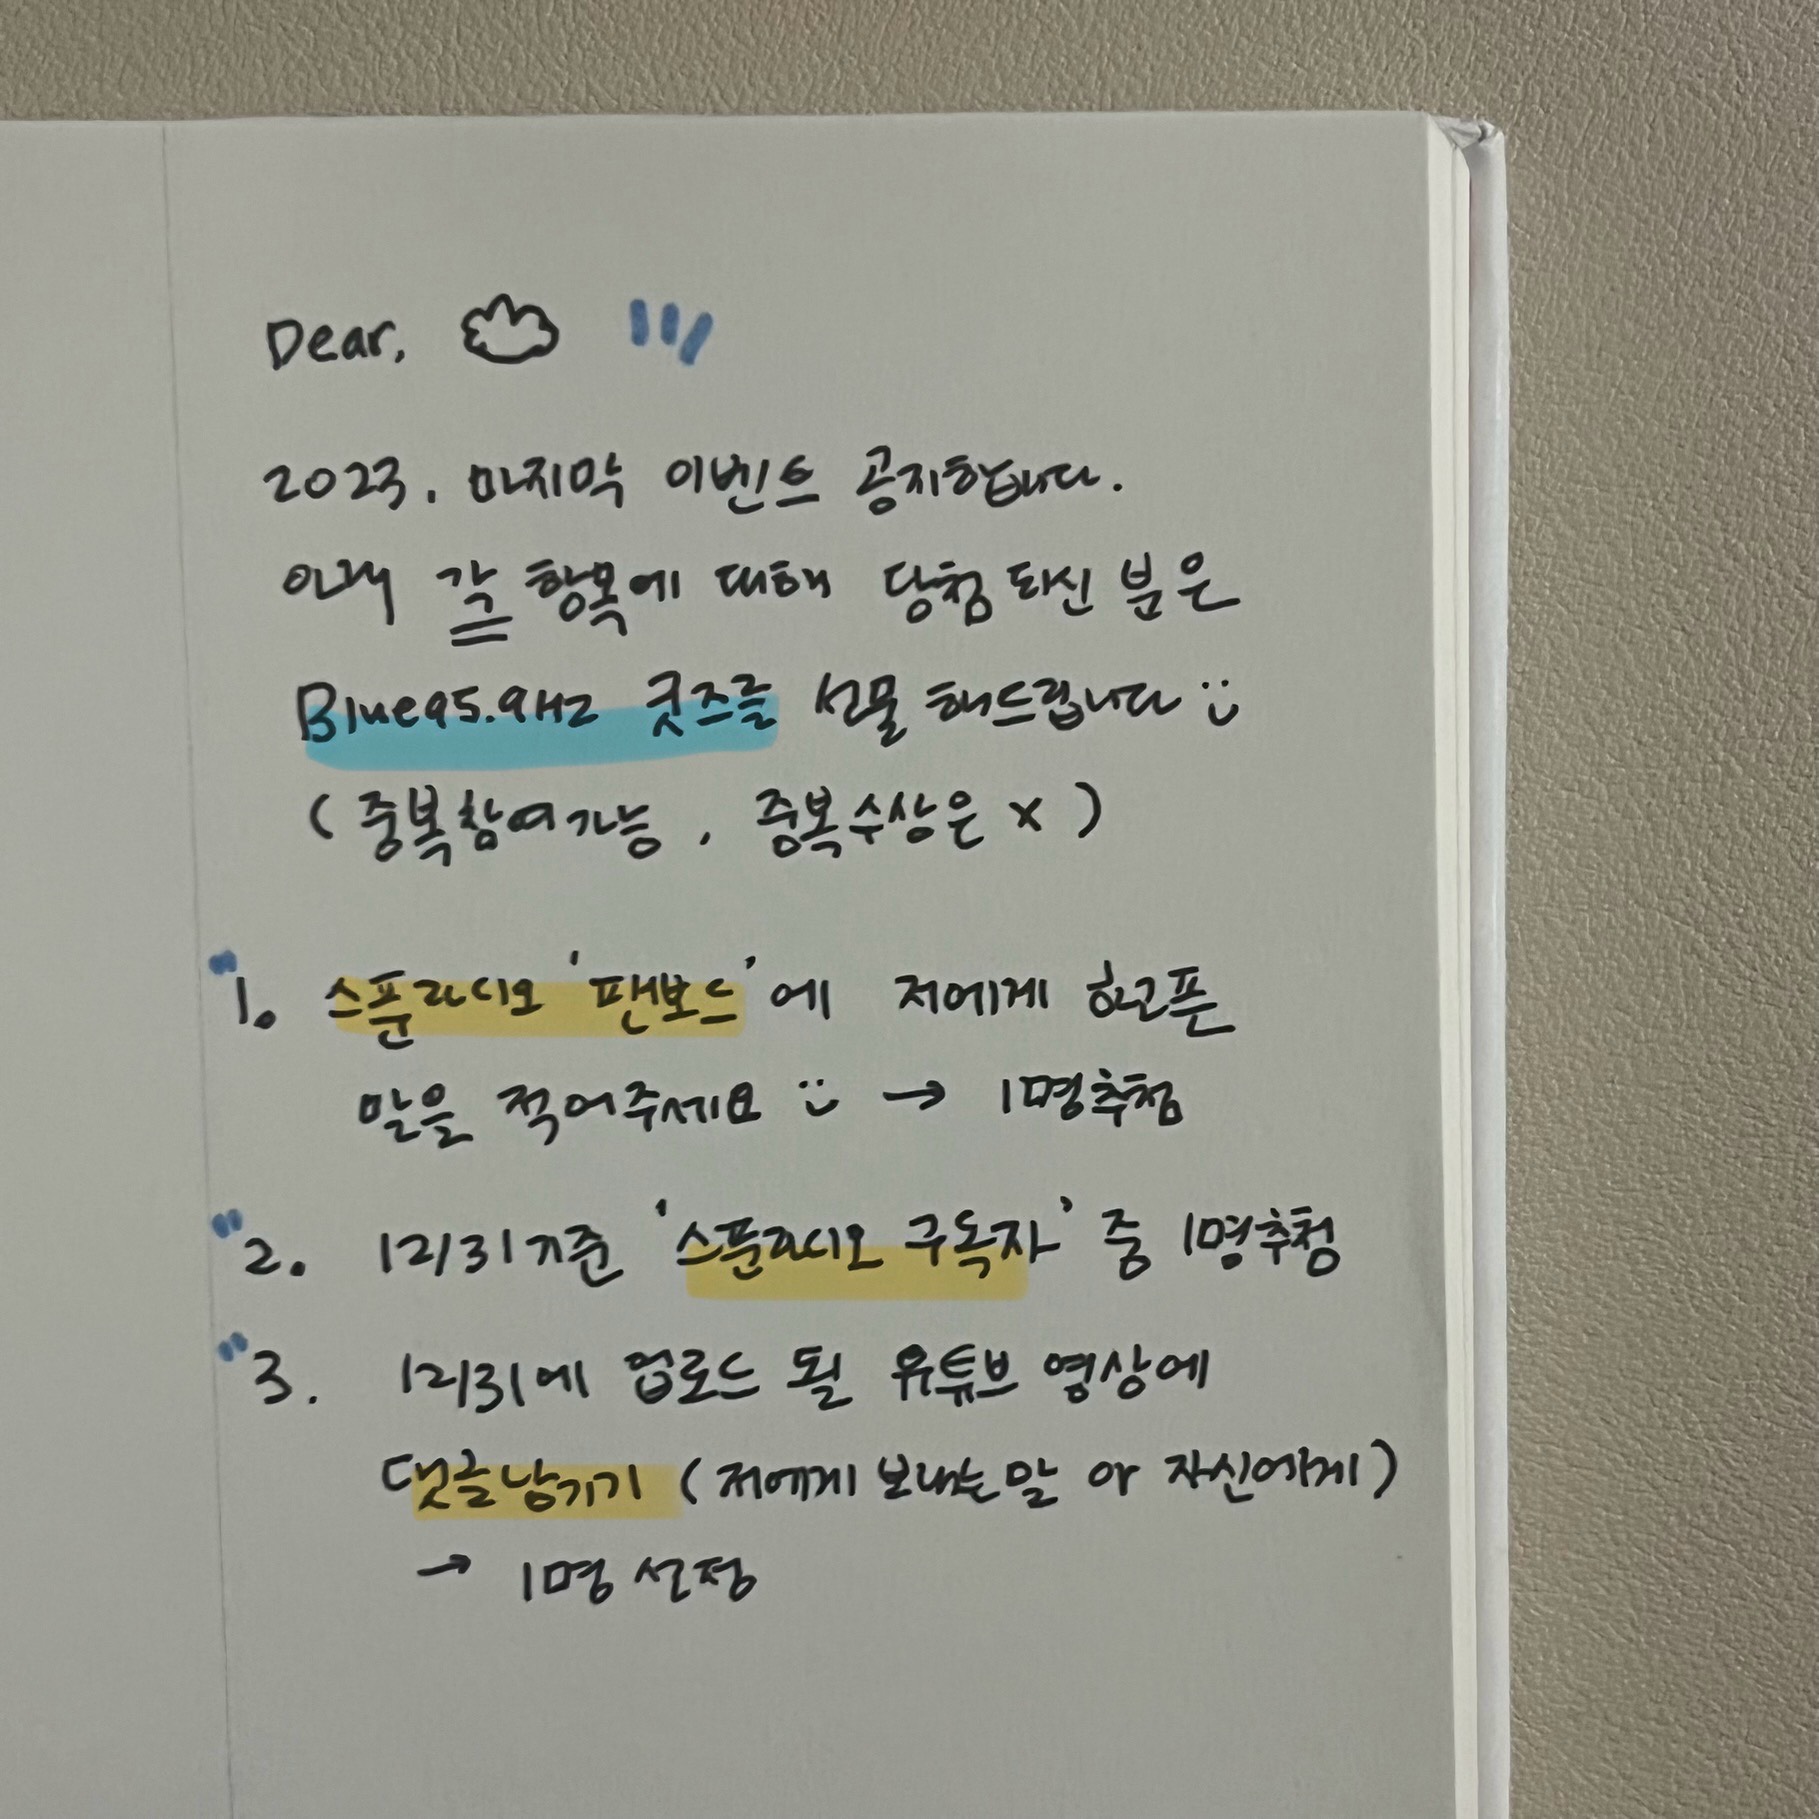 Dear,
2023. 마지막 이벤트 공지합니다.
아래 각 항목에 대해 당첨되신 분은
Blue95.9Hz 굿즈를 선물해드립니다 :)
(중복참여가능, 중복수상은 x)
1. 스푼라디오 '팬보드'에 저에게 하고픈
말을 적어주세요 :) → 1명추첨
2. 12/31기준 '스푼라디오 구독자' 중 1명추첨
3. 12/31에 업로드 될 유튜브 영상에
댓글남기기 (저에게 보내는말 or 자신에게)
→ 1명 선정